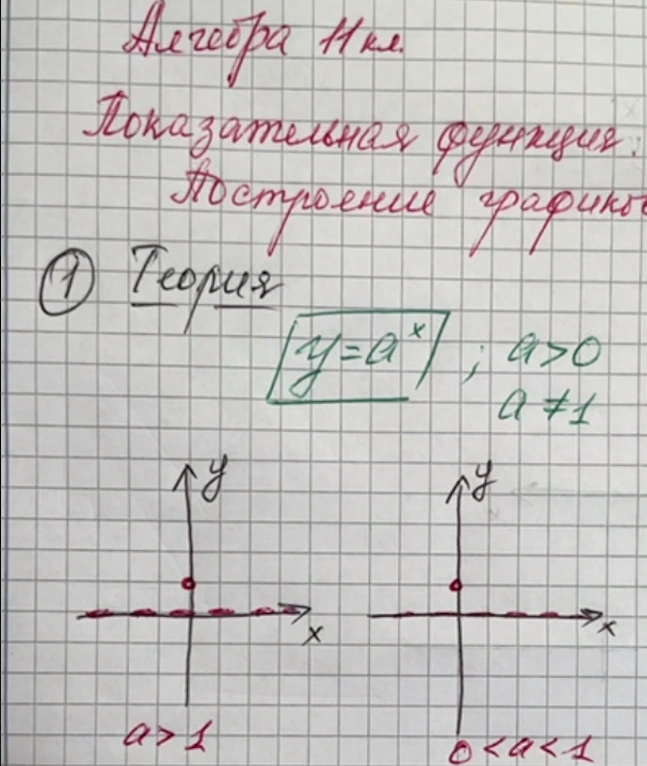 Алгебра 11 кл.
Показательная функция.
Построение графиков
① Теория
y=aˣ ; a>0
a≠1
y
y
x
x
a>1
0<a<1